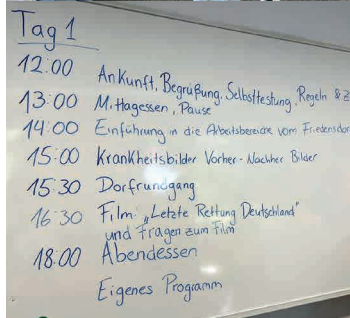 Tag 1
12:00 Ankunft, Begrüßung, Selbsttestung, Regeln &
13:00 Mittagessen, Pause
14:00 Einführung in die Arbeitsbereiche vom Friedensdor
15:00 Krankheitsbilder Vorher-Nachher Bilder
15:30 Dorfrundgang
16:30 Film: „Letzte Rettung Deutschland"
und Fragen zum Film
18:00 Abendessen
Eigenes Programm